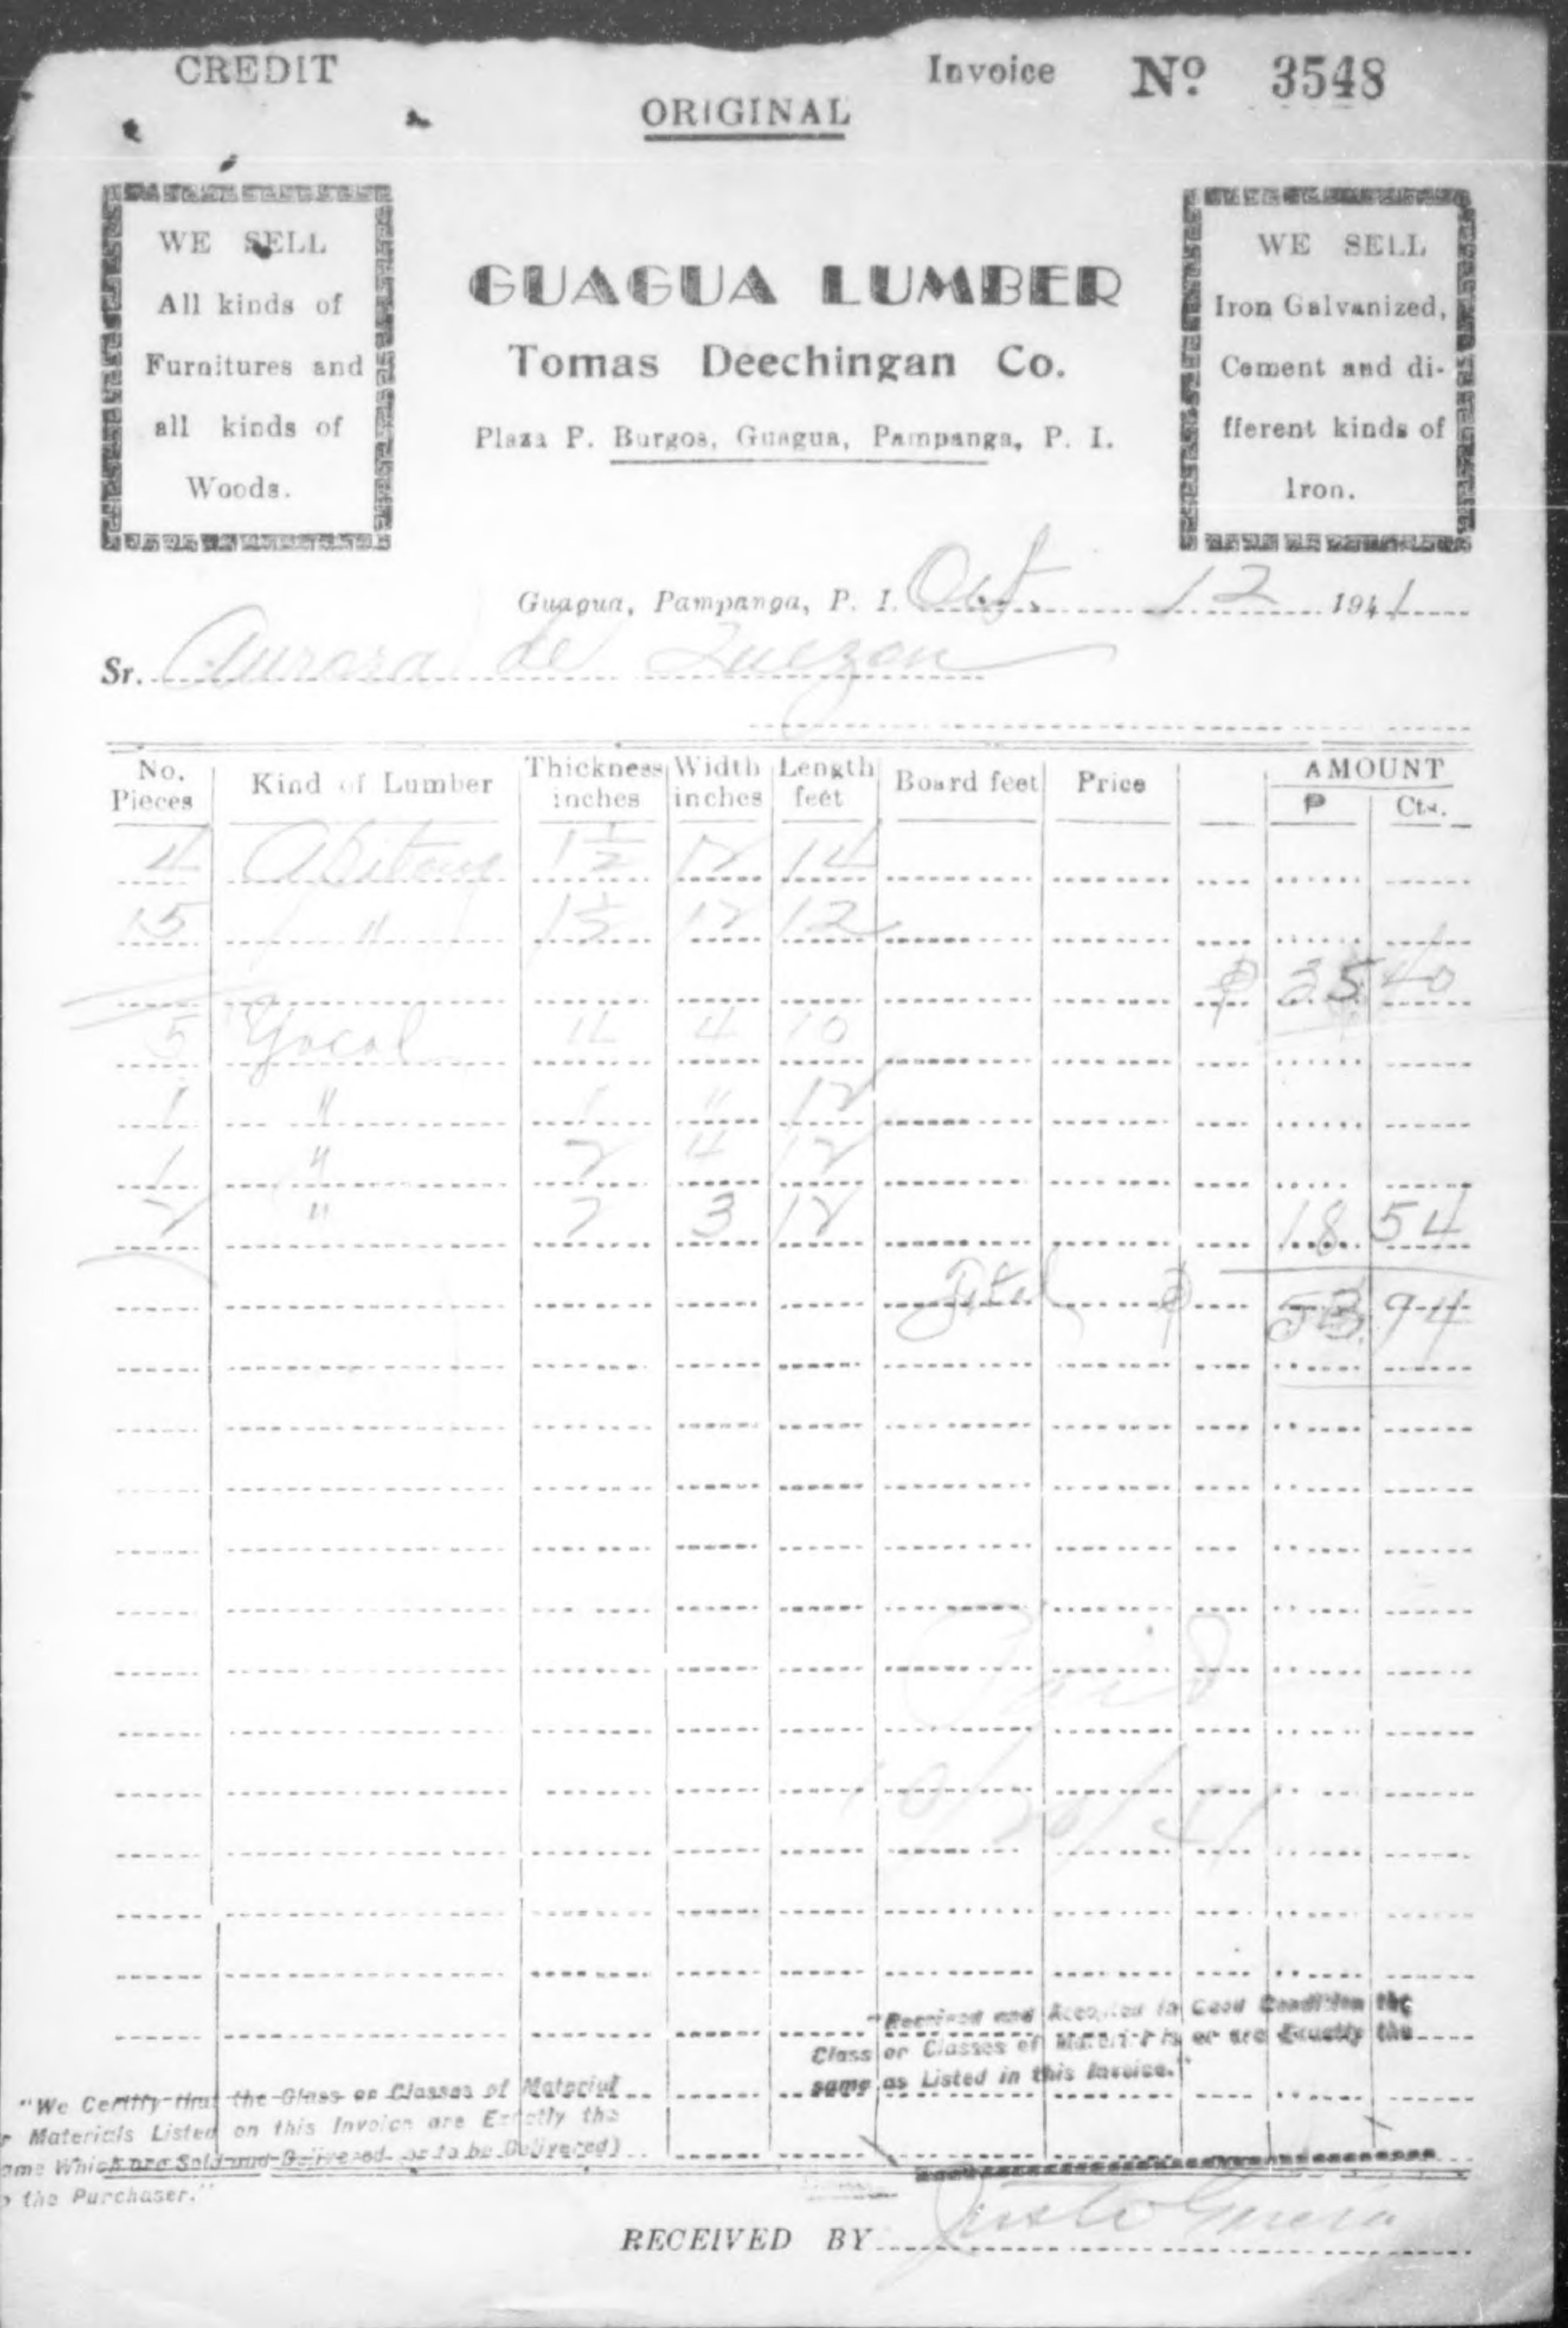 CREDIT
Invoice Nº 3548
ORIGINAL
WE SELL
All kinds of
Furnitures and
all kinds of
Woods.
GUAGUA LUMBER
Tomas Deechingan Co.
Plaza P. Burgos, Guagua, Pampanga, P. I.
WE SELL
Iron Galvanized,
Cement and di-
fferent kinds of
Iron.
Guagua, Pampanga, P. I. Oct. 12 1941
Sr. Aurora de Quezon
No. Pieces Kind of Lumber Thickness inches Width inches Length feet Board feet Price AMOUNT
₱ Cts.
4 1½ 12 14
15 " 1½ 12 12
₱ 35 40
5 Yacal 4 4 10
1 " " 12
1 " 2 4 12
2 " 2 3 12 18 54
Total ₱ 53 94
Paid
10/20/41
"Received and Accepted in Good Condition the
Class or Classes of Materials or are Exactly the
same as Listed in this Invoice."
"We Certify that the Class or Classes of Material
r Materials Listed on this Invoice are Exactly the
ame Which are Sold and Delivered or to be Delivered)
o the Purchaser."
RECEIVED BY Justo